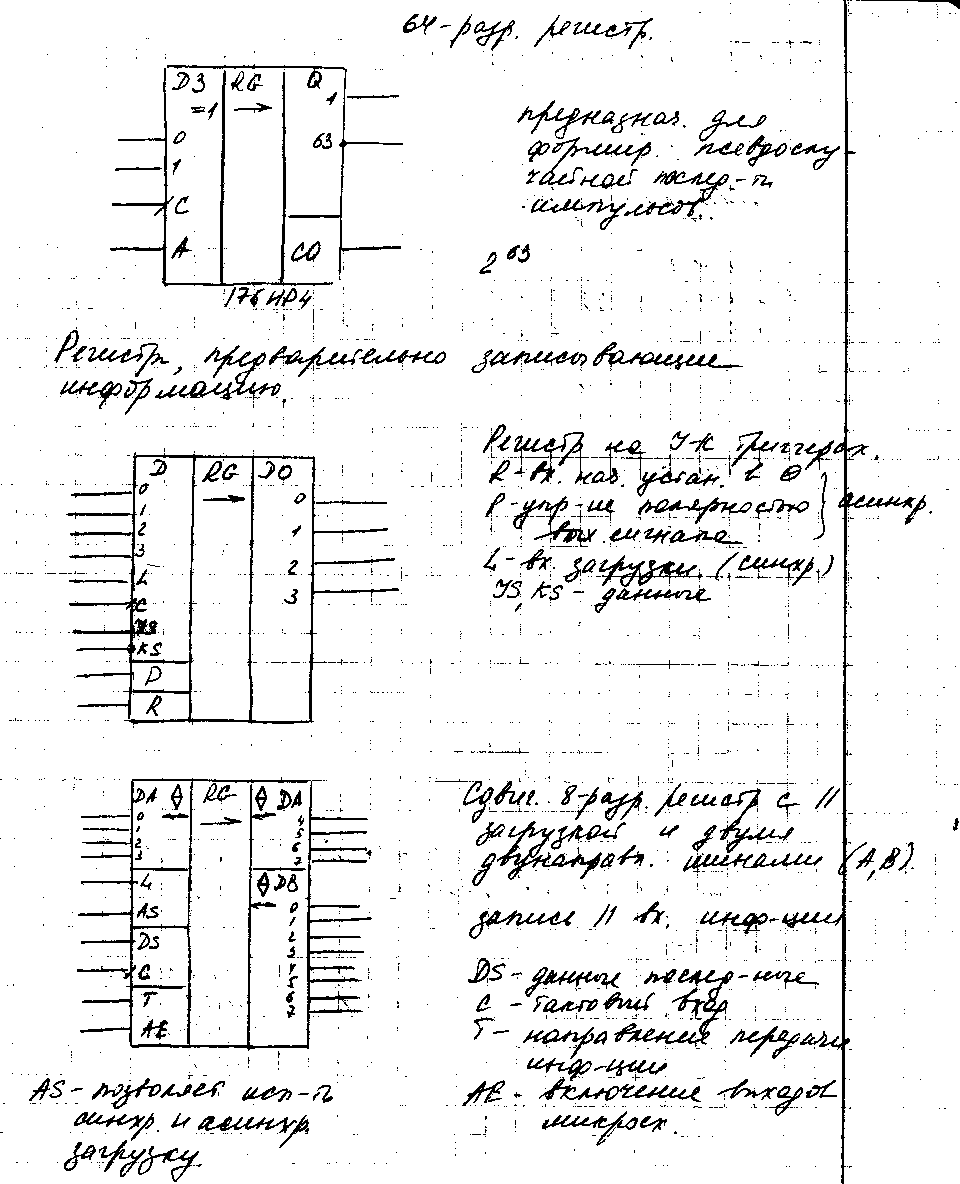 64-разр. регистр.
D3 RG Q
=1 → 1
0 63
1
C
A CO
176ИР4
предназнач. для
формир. псевдослу-
чайной послед-ти
импульсов.
2^63
Регистр, предварительно записывающие
информацию.
D RG DO
0 → 0
1 1
2 2
3 3
L
C
JS
KS
P
R
Регистр на J-K триггерах.
R - вх. нач. устан. в 0
P - упр-ие полярностью
вых сигнала
асинхр.
L - вх. загрузки. (синхр.)
JS, KS - данные
DA RG DA
0 4
1 5
2 6
3 7
L DB
AS 0
DS 1
C 2
T 3
AE 4
5
6
7
Сдвиг. 8-разр. регистр с //
загрузкой и двумя
двунаправл. шинами (A,B).
запись // вх. инф-ции
DS - данные послед-ные
C - тактовый вход
T - направление передачи
инф-ции
AE - включение выходов
микросх.
AS - позволяет исп-ть
синхр. и асинхр.
загрузку.